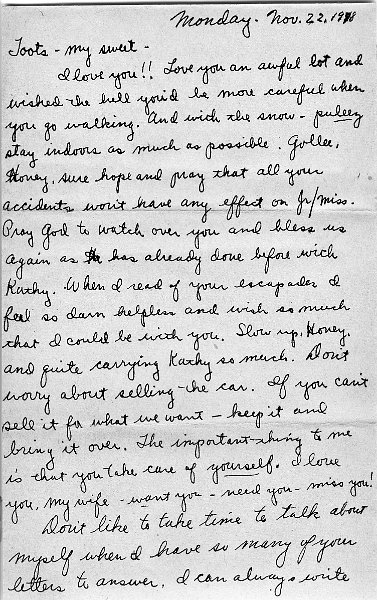 Monday. Nov. 22, 1948
Toots - my sweet -
I love you!! Love you an awful lot and
wished the hell you'd be more careful when
you go walking. And with the snow - puleey
stay indoors as much as possible. Gollee,
Honey, sure hope and pray that all your
accidents won't have any effect on Jr/miss.
Pray God to watch over you and bless us
again as He has already done before with
Kathy. When I read of your escapades I
feel so darn helpless and wish so much
that I could be with you. Slow up, Honey,
and quite carrying Kathy so much. Don't
worry about selling the car. If you can't
sell it for what we want - keep it and
bring it over. The important thing to me
is that you take care of yourself. I love
you, my wife - want you - need you - miss you!
Don't like to take time to talk about
myself when I have so many of your
letters to answer. I can always write